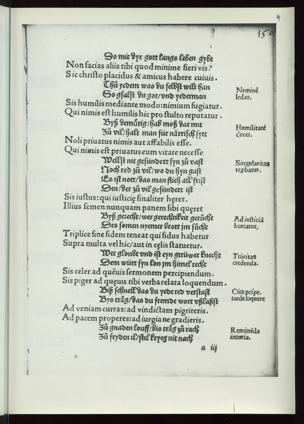 150
So mit dyr gott langs leben gybt
Non facias aliis tibi quod minime fieri vis
Sic christo placidus & amicus habere cuiuis.
Thů yedem was du selbst wilt han
So gfalst du got/vnd yederman
Nemini ledas.
Sis humilis mediante modo nimium fugiatur.
Qui nimis est humilis hic pro stulto reputatur.
Byß demůtig/hab moß dar mit
Zů vil/halt man für närrisch sytt
Humilitate decet.
Noli priuatus nimis aut affabilis esse.
Qui nimis est priuatus eum vitare necesse
Wellst nit gesündert syn zů vast
Noch red zů vil/wo du hyn gast
Es ist nott/das man flieh all frist
Den/der zů vil gesündert ist
Singularitas reprobatur.
Sis iustus: qui iusticię finaliter hęret.
Illius semen nunquam panem sibi quęret
Byß gerecht/wer gerechtikeit gerücht
Des somen nyemer brott jm sůcht
Ad iusticiā hortatur.
Triplice sine fidem teneat qui fidus habetur
Supra multa vel hic/aut in cęlis statuetur.
Wer gloubt vnd ist eyn getrüwer knecht
Dem würt syn lon jm himel recht
Trinitas credenda.
Sis celer ad quęuis sermonem percipiendum.
Sis piger ad quęuis tibi verba relata loquendum.
Biß schnell/das du yede red verstast
Bys träg/das du fremde wort vßlaßst
Cito pcipe. tarde loquere
Ad veniam curras: ad vindictam pigriteris.
Ad pacem properes: ad iurgia ne gradieris.
Zů gnaden louff/bis träg zů rach
Zů fryden il/stel kryeg nit nach
Remittēda iniuria.
a iij